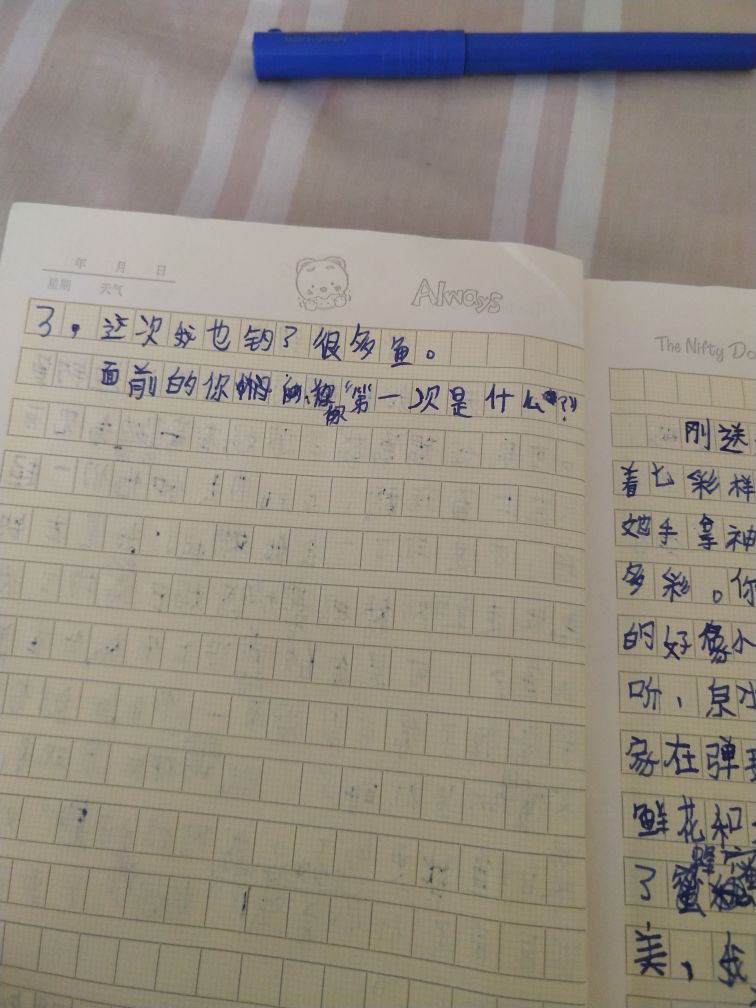 年 月 日
星期 天气
Always
了，这次我也钓了很多鱼。
面前的你 “第一次是什么?”
你
The Nifty Do
刚送
着七彩样
她手拿神
多彩。你
的好像小
听，泉水
家在弹
鲜花和
了
美，我